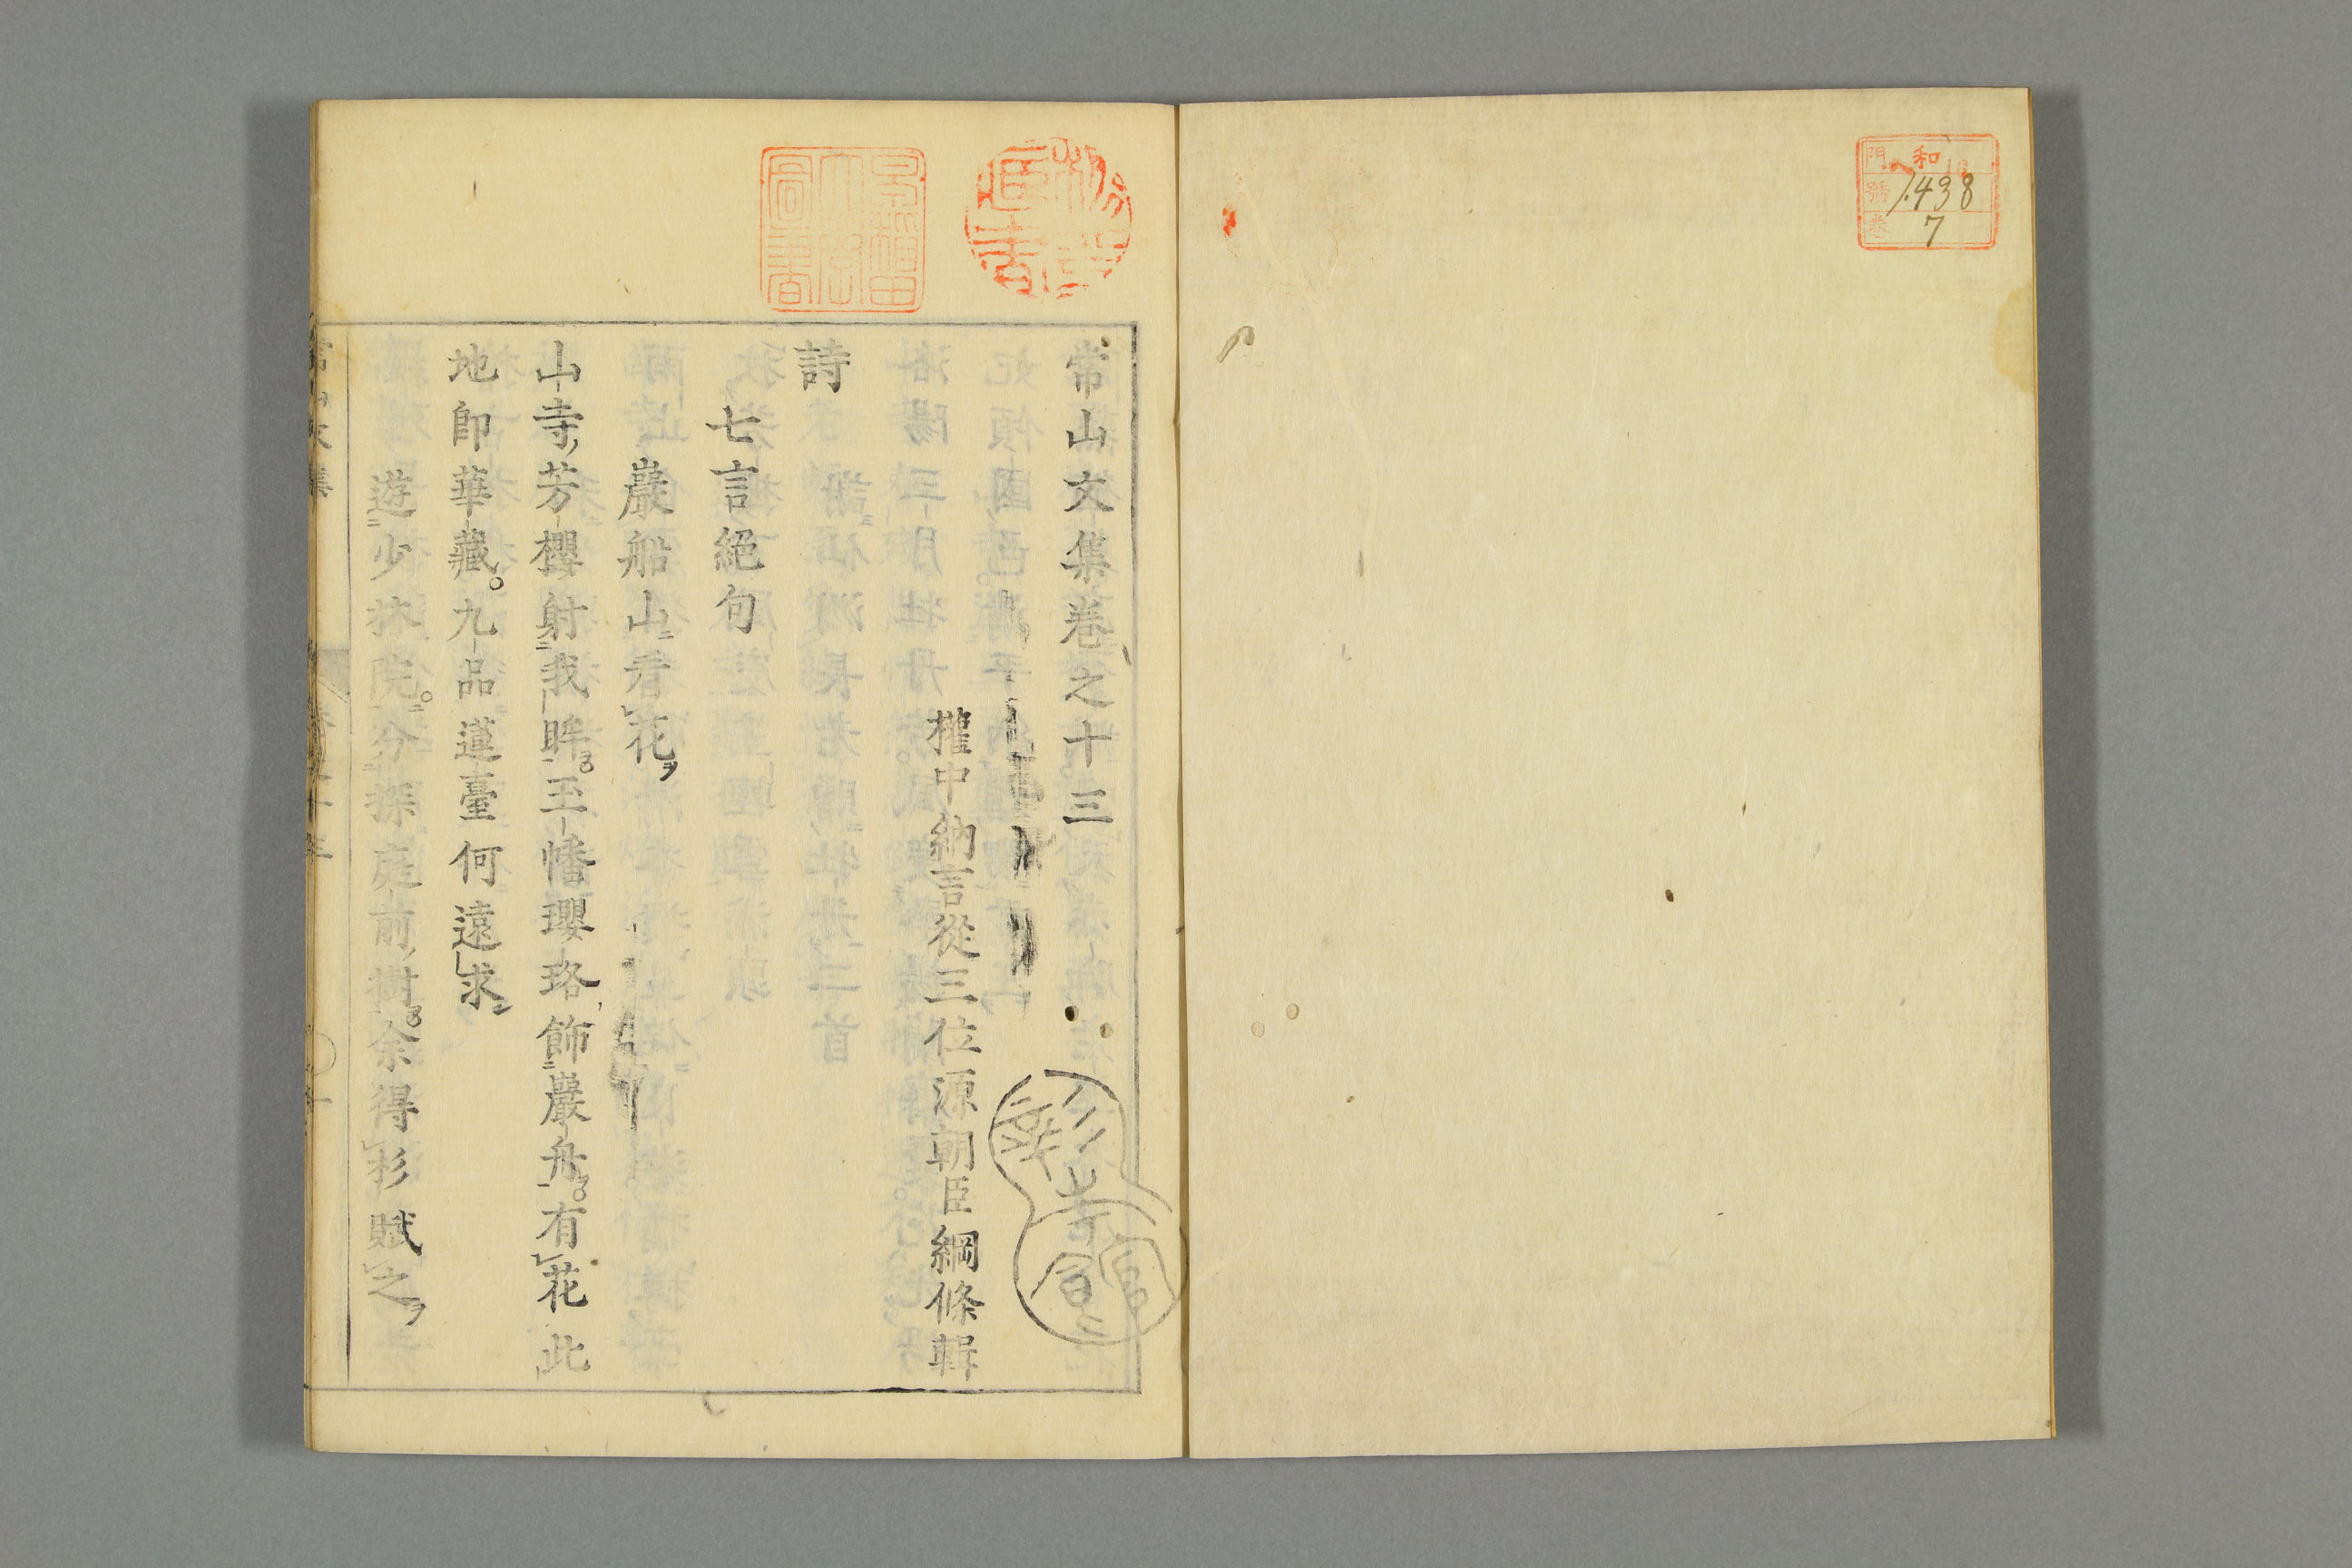 和
門
號 1438
卷 7
常山文集卷之十三
權中納言從三位源朝臣綱條輯
詩
七言絕句
巖船山看花
山寺芳櫻射我眸。玉幡瓔珞飾巖舟。有花此
地卽華藏。九品蓮臺何遠求
遊少林院。分探庭前樹。余得杉賦之